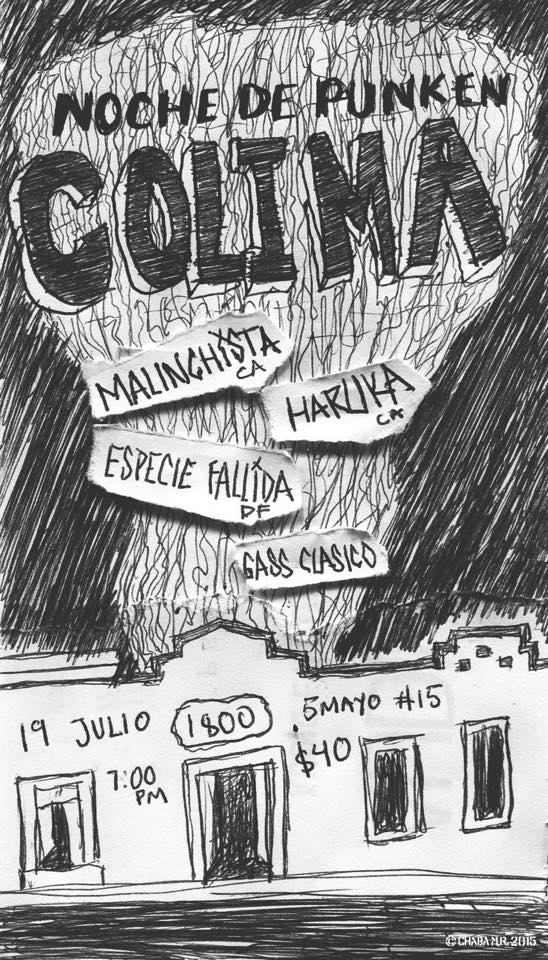 NOCHE DE PUNK EN
COLIMA
MALINCHISTA
CA
HARUKA
CA
ESPECIE FALLIDA
DF
GASS CLASICO
19 JULIO
1800
5 MAYO #15
7:00
PM
$40
© CHABA M.R. 2015